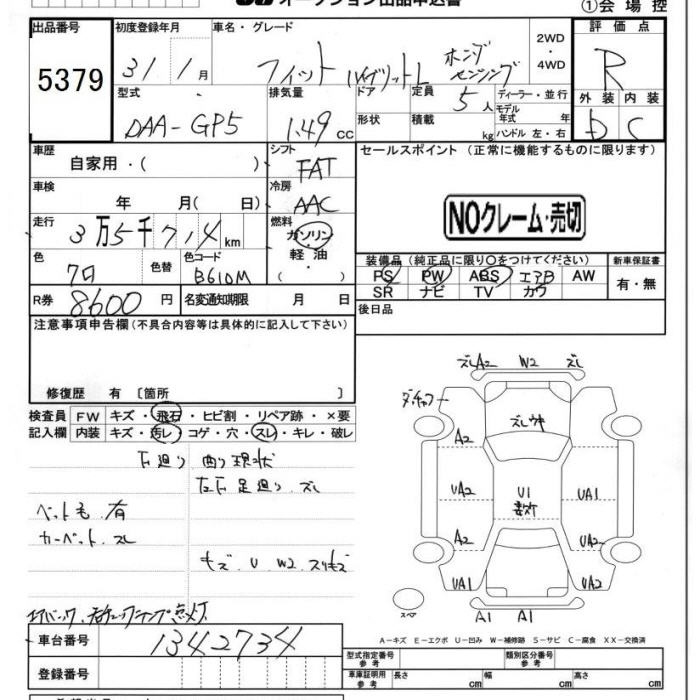 オークション出品申込書
①会場控
出品番号 初度登録年月 車名・グレード 2WD・4WD 評価点
5379 31年1月 フィット ハイブリットL ホンダセンシング R
型式 排気量 ドア 定員 5人 ディーラー・並行 外装 内装
DAA-GP5 1.49cc 形状 積載 kg モデル年式 年 ハンドル 左・右 D C
車歴 シフト セールスポイント (正常に機能するものに限ります)
自家用・( ) FAT
車検 冷房
年 月( 日) AAC NOクレーム・売切
走行 燃料
3万5千714km ガソリン・軽油・( )
色 色替 色コード 装備品(純正品に限り○をつけてください) 新車保証書
クロ B610M PS PW ABS エアB AW 有・無
SR ナビ TV カワ
R券 8600円 名変通知期限 月 日 後日品
注意事項申告欄(不具合内容等は具体的に記入して下さい)
修復歴 有 〔箇所 〕
検査員 FW キズ・飛石・ヒビ割・リペア跡・×要
記入欄 内装 キズ・汚レ・コゲ・穴・スレ・キレ・破レ
下廻り 曲り現状
左右F足廻り.ズレ
ペット毛.有
カーペット.スレ
キズ.U.W2.スリキズ
車台番号 1342734
登録番号
ズレA2 W2 ズレ
A2 ズレウキ
UA2 U1 UA1
A2 UA2
UA1 UA2
スペア A1 A1
A-キズ E-エクボ U-凹み W-補修跡 S-サビ C-腐食 XX-交換済
型式指定番号 参考 類別区分番号 参考
車庫証明用 参考 長さ cm 幅 cm 高さ cm